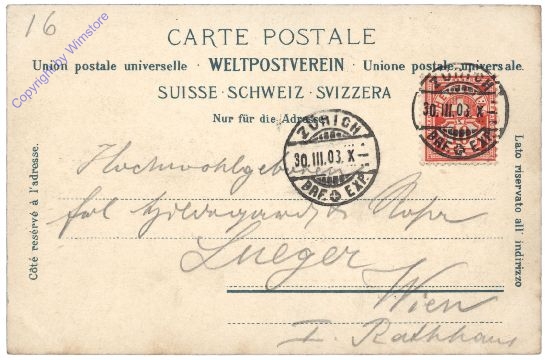 16
Copyright by Wimstore
CARTE POSTALE
Union postale universelle · WELTPOSTVEREIN · Unione postale universale.
SUISSE · SCHWEIZ · SVIZZERA
Nur für die Adresse
ZÜRICH
30.III.03.X-
BRF. EXP.
ZÜRICH
30.III.03.X-
BRF. EXP.
Côté resérvé à l'adresse.
Lato riservato all' indirizzo
Hochwohlgeboren
Hildegard & Rosa
Lueger
Wien
I. Rathhaus